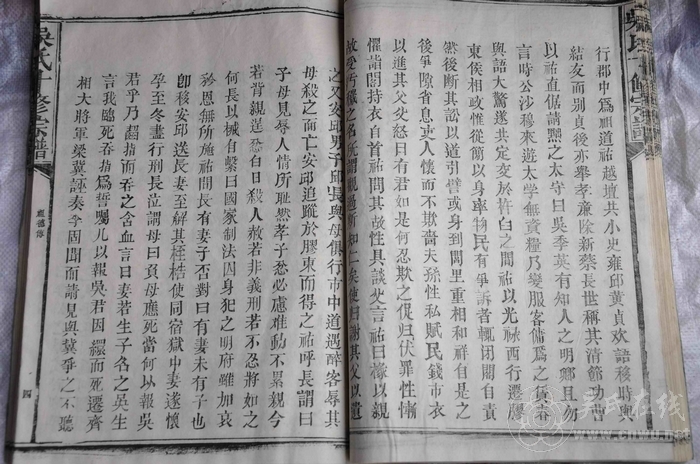 吳氏十修宗譜
行郡中爲祖道祐越壇共小史雍邱黃貞欢語移時與
結友而别貞後亦舉孝亷除新蔡長世稱其清節功曹
以祐直倨請黜之太守曰吳季英有知人之明卿且勿
言時公沙穆來遊太學無資糧乃變服客傭爲之賃舂
與語大驚遂共定交於杵臼之間祐以光祿西行遷膠
東侯相政惟從簡以身率物民有爭訴者輒閉閣自責
然後斷其訟以道引譬或身到閭里重相和祥自是之
後爭隙省息吏人懷而不欺嗇夫孫性私賦民錢市衣
以進其父父怒曰有君如是何忍欺之促归伏罪性慚
懼詣閤持衣自首祐問其故性具談父言祐曰掾以親
故受汚穢之名所謂觀過斯知仁矣使曰謝其父以遺
之又安邱男子邱長與母俱行市中道遇醉客辱其
母殺之而亡安邱追蹤於膠東而得之祐呼長謂曰
子母見辱人情所耻然孝子忿必慮難動不累親今
若背親逞怒白日殺人赦若非義刑若不忍將如之
何長以械自繫曰國家制法囚身犯之明府雖加哀
矜恩無所施祐問長有妻子否對曰有妻未有子也
卽移安邱送長妻至解其桎梏使同宿獄中妻遂懷
孕至冬盡行刑長泣謂母曰負母應死當何以報吳
君乎乃齧指而吞之含血言曰妻若生子名之吳生
言我臨死吞指爲誓囑兒以報吳君因繯而死遷齊
相大將軍梁冀誣奏李固聞而請見與冀爭之不聽
吳氏十修宗譜
四
吴氏在线
www.cnwu.net